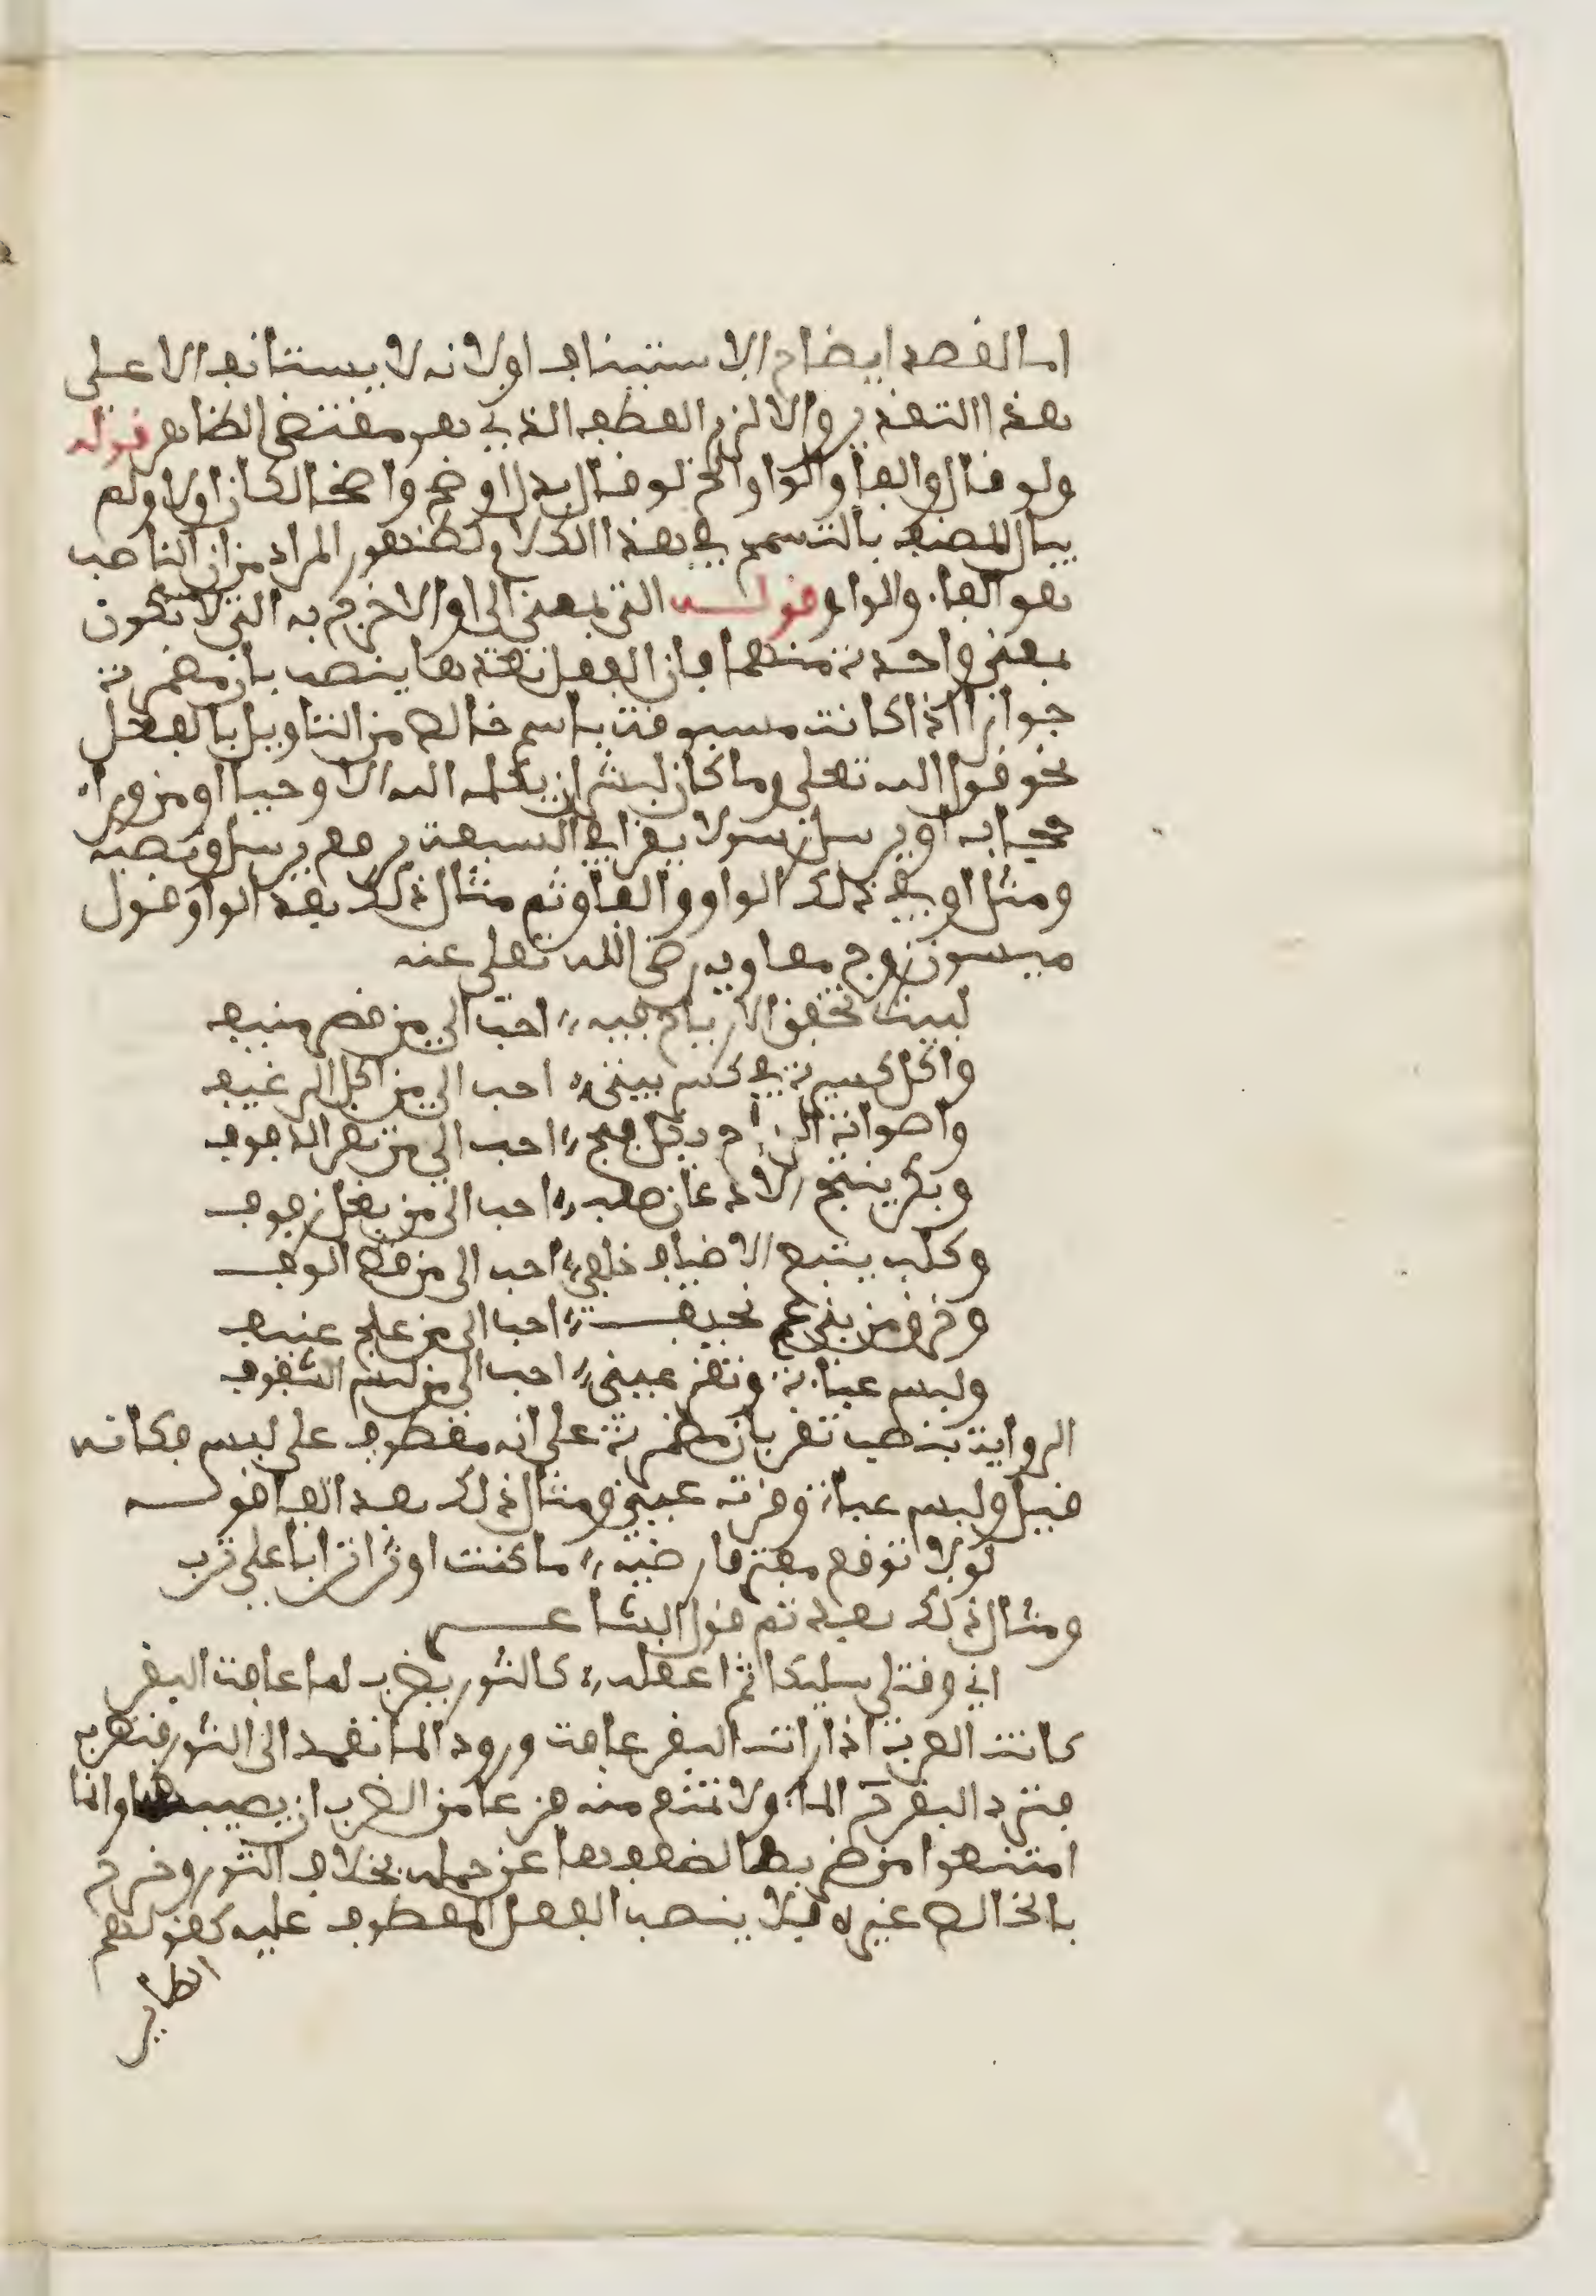 اما القصد ايضاح الاستيناف اولا نه لا يستانف الا على
هذا التقدير والا لزم العطف الذي هو مقتضى الظاهر قوله
ولو قال والفا والواو الخ لو قال بدل اوضح واضحا لكان اولا ولم
يبال المصنف بالتسمح في هذا الكلام لظهور المراد من ان الناصب
هو الفاء والواو قولـه التي بمعنى الى او الا خرج به التي لا تكون
بمعنى واحدة منهما فان الفعل بعدها ينصب بان مضمرة
جوازا اذا كانت مسبوقة باسم خالص من التاويل بالفعل
نحو قول الله تعلى وما كان لبشر ان يكلمه الله الا وحيا او من وراء
حجاب او يرسل رسولا يقرا في السبعة برفع يرسل ونصبه
ومثل او في ذلك الواو والفا وثم مثال ذلك بعد الواو قول
ميسون زوج معاويه رضي الله تعلى عنه
لبيت تخفق الارياح فيه احب الي من قصر منيف
واكل كسيرة في كسر بيتي احب الي من اكل الرغيف
واصوات الرياح بكل فج احب الي من نقر الدفوف
وبكر يتبع الاظعان صعب احب الى من بغل زفوف
وكلب ينبح الاضياف خلفي احب الى من قط الوف
وخرق من بني عم نحيف احب الى من علج عنيف
ولبس عباءة وتقر عيني احب الى من لبس الشفوف
الرواية بنصب تقر بان مضمرة على انه معطوف على لبس فكانه
قيل ولبس عباءة وقرة عيني ومثال ذلك بعد الفا قولـه
لولا توقع معتر فارضيه ما كنت اوثر اترابا على ترب
ومثال ذلك بعد ثم قول الشاعـر
اني وقتلي سليكا ثم اعقله كالثور يضرب لما عافت البقر
كانت العرب اذا رات البقر عافت ورود الما تعمد الى الثور فتضربه
فترد البقر الماء ولا تمتنع منه فزعا من الضرب ان يصيبها وانما
امتنعوا من ضربها لضعفها عن حمله بخلاف الثور وخرج
بالخالص غيره فلا ينصب الفعل المعطوف عليه كقولهم
الطاير